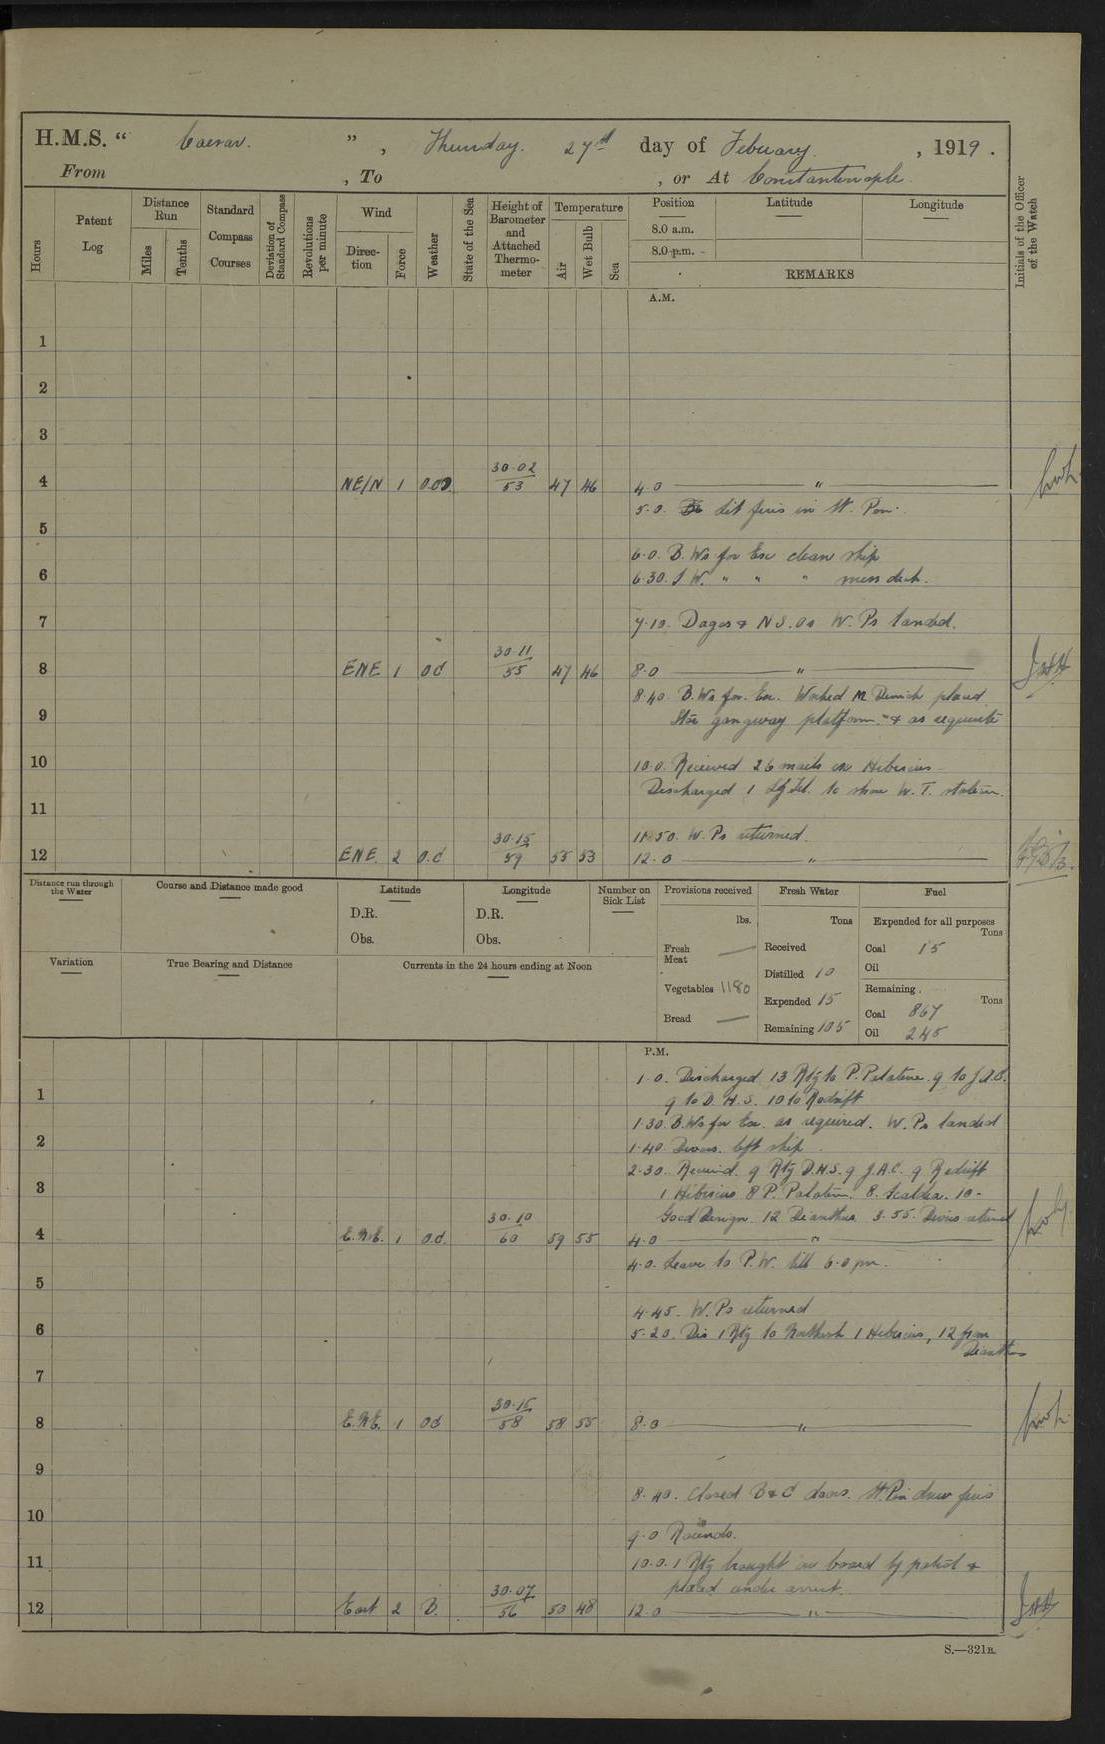 H.M.S. " Caesar. ", Thursday. 27th day of Febuary, 1919.
From , To , or At Constantinople.
Hours
Patent Log
Distance Run
Miles
Tenths
Standard Compass Courses
Deviation of Standard Compass
Revolutions per minute
Wind
Direction
Force
Weather
State of the Sea
Height of Barometer and Attached Thermometer
Temperature
Air
Wet Bulb
Sea
Position
Latitude
Longitude
8.0 a.m.
8.0 p.m.
REMARKS
Initials of the Officer of the Watch
A.M.
1
2
3
4 NE/N 1 30.02/53 47 46 4.0 "
5.0. Lit fires in St. Pin.
5
6.0. B.Ws for Ex clean ship
6 6.30. " " " mess deck.
7 7.10. W. Ps landed.
8 ENE 1 od 30.11/55 47 46 8.0 "
8.40. B.Ws for Ex. Worked placed
9 gangway platform & as requisite
10 10.0. Received 26 mails ex Hibiscus
Discharged 1 to shore W. T. station.
11
11.50. W. Ps returned.
12 ENE. 2 o.d 30.15/59 55 53 12.0 "
Distance run through the Water
Course and Distance made good
Latitude
D.R.
Obs.
Longitude
D.R.
Obs.
Number on Sick List
Provisions received
lbs.
Fresh Meat —
Vegetables 1180
Bread —
Fresh Water
Tons
Received
Distilled 10
Expended 15
Remaining 105
Fuel
Expended for all purposes
Tons
Coal 15
Oil
Remaining.
Tons
Coal 867
Oil 245
Variation
True Bearing and Distance
Currents in the 24 hours ending at Noon
P.M.
1.0. Discharged 13 Rtg to P. Palatine. 9 to J.A.C.
1 9 to D.H.S. 10 to Redrift
1.30. B.Ws for Ex. as required. W. Ps landed
2 1.40. Divers left ship
2.30. Received 9 Rtg D.H.S. 9 J.A.C. 9 Redrift
3 1 Hibiscus 8 P. Palatine. 8. Scaldea. 10 -
Good Design. 12 Dianthus. 3.55. Divers returned
4 E.N.E. 1 o.d. 30.10/60 59 55 4.0 "
4.0. Leave to P.W. till 6.0 pm.
5
4.45. W. Ps returned
6 5.20. Dis 1 Rtg to 1 Hibiscus, 12 from
Dianthus
7
8 E.N.E. 1 od 30.15/58 58 55 8.0 "
9
8.40. Closed B & C doors. St. Pin drew fires
10
9.0 Rounds.
11 10.0. 1 Rtg brought on board by patrol &
placed under arrest.
12 East 2 B. 30.07/56 50 48 12.0 "
S.—321B.